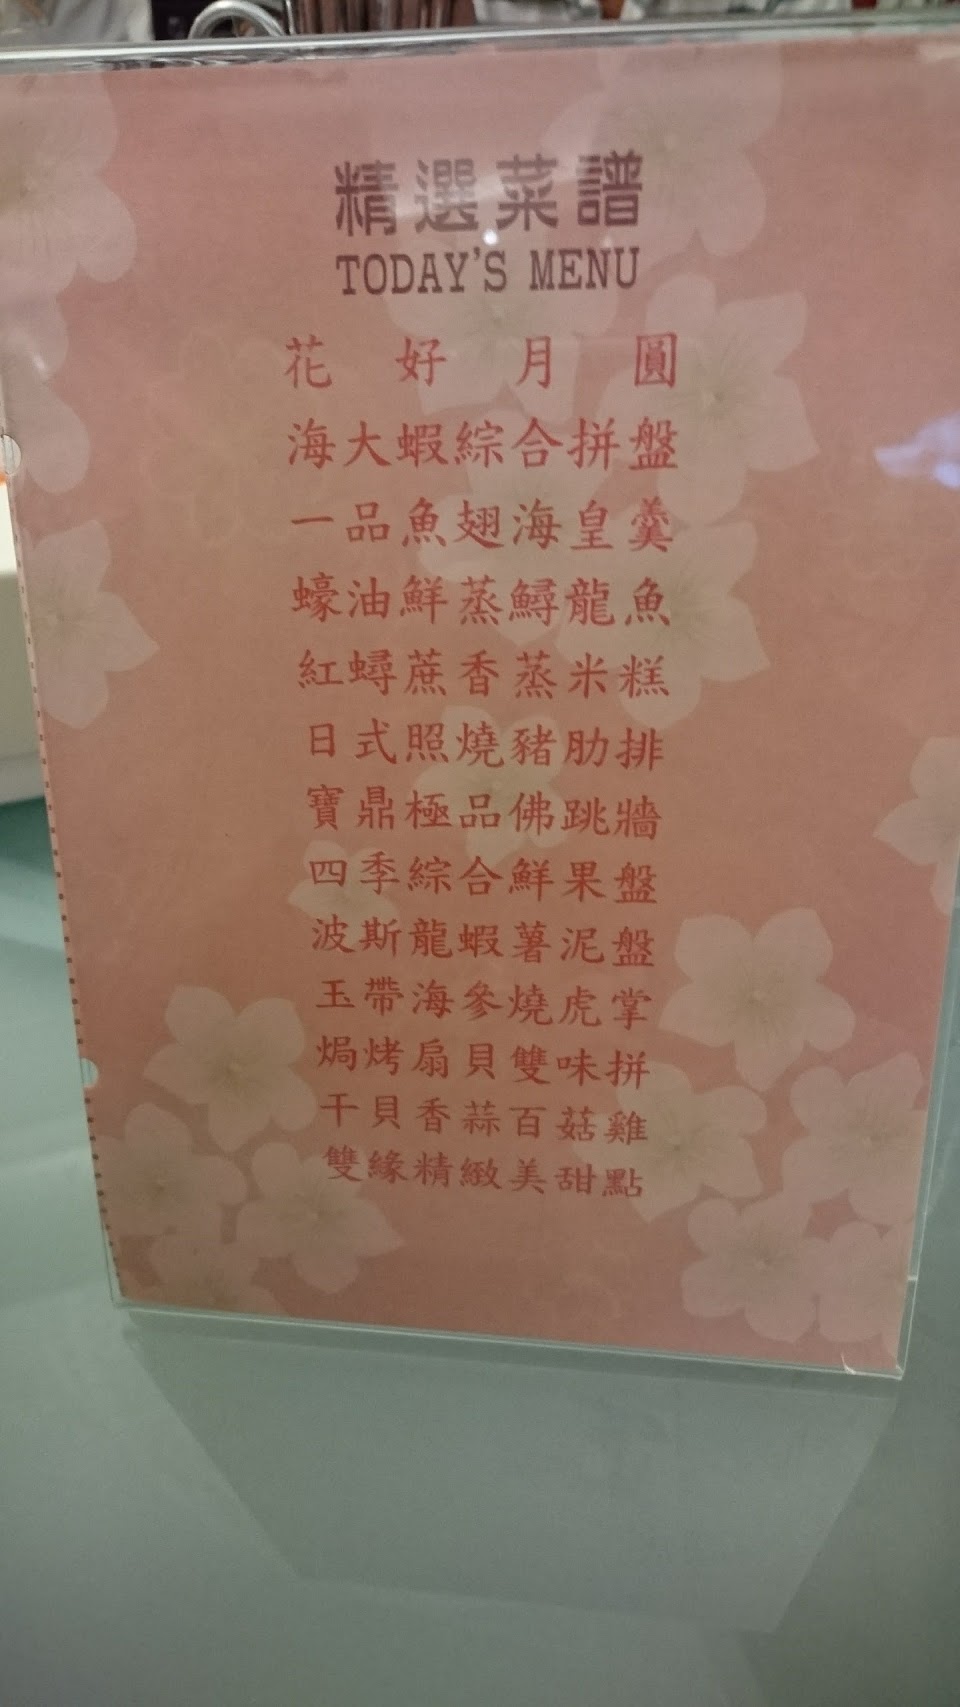 精選菜譜
TODAY'S MENU
花好月圓
海大蝦綜合拼盤
一品魚翅海皇羹
蠔油鮮蒸鱘龍魚
紅蟳蔗香蒸米糕
日式照燒豬肋排
寶鼎極品佛跳牆
四季綜合鮮果盤
波斯龍蝦薯泥盤
玉帶海參燒虎掌
焗烤扇貝雙味拼
干貝香蒜百菇雞
雙緣精緻美甜點